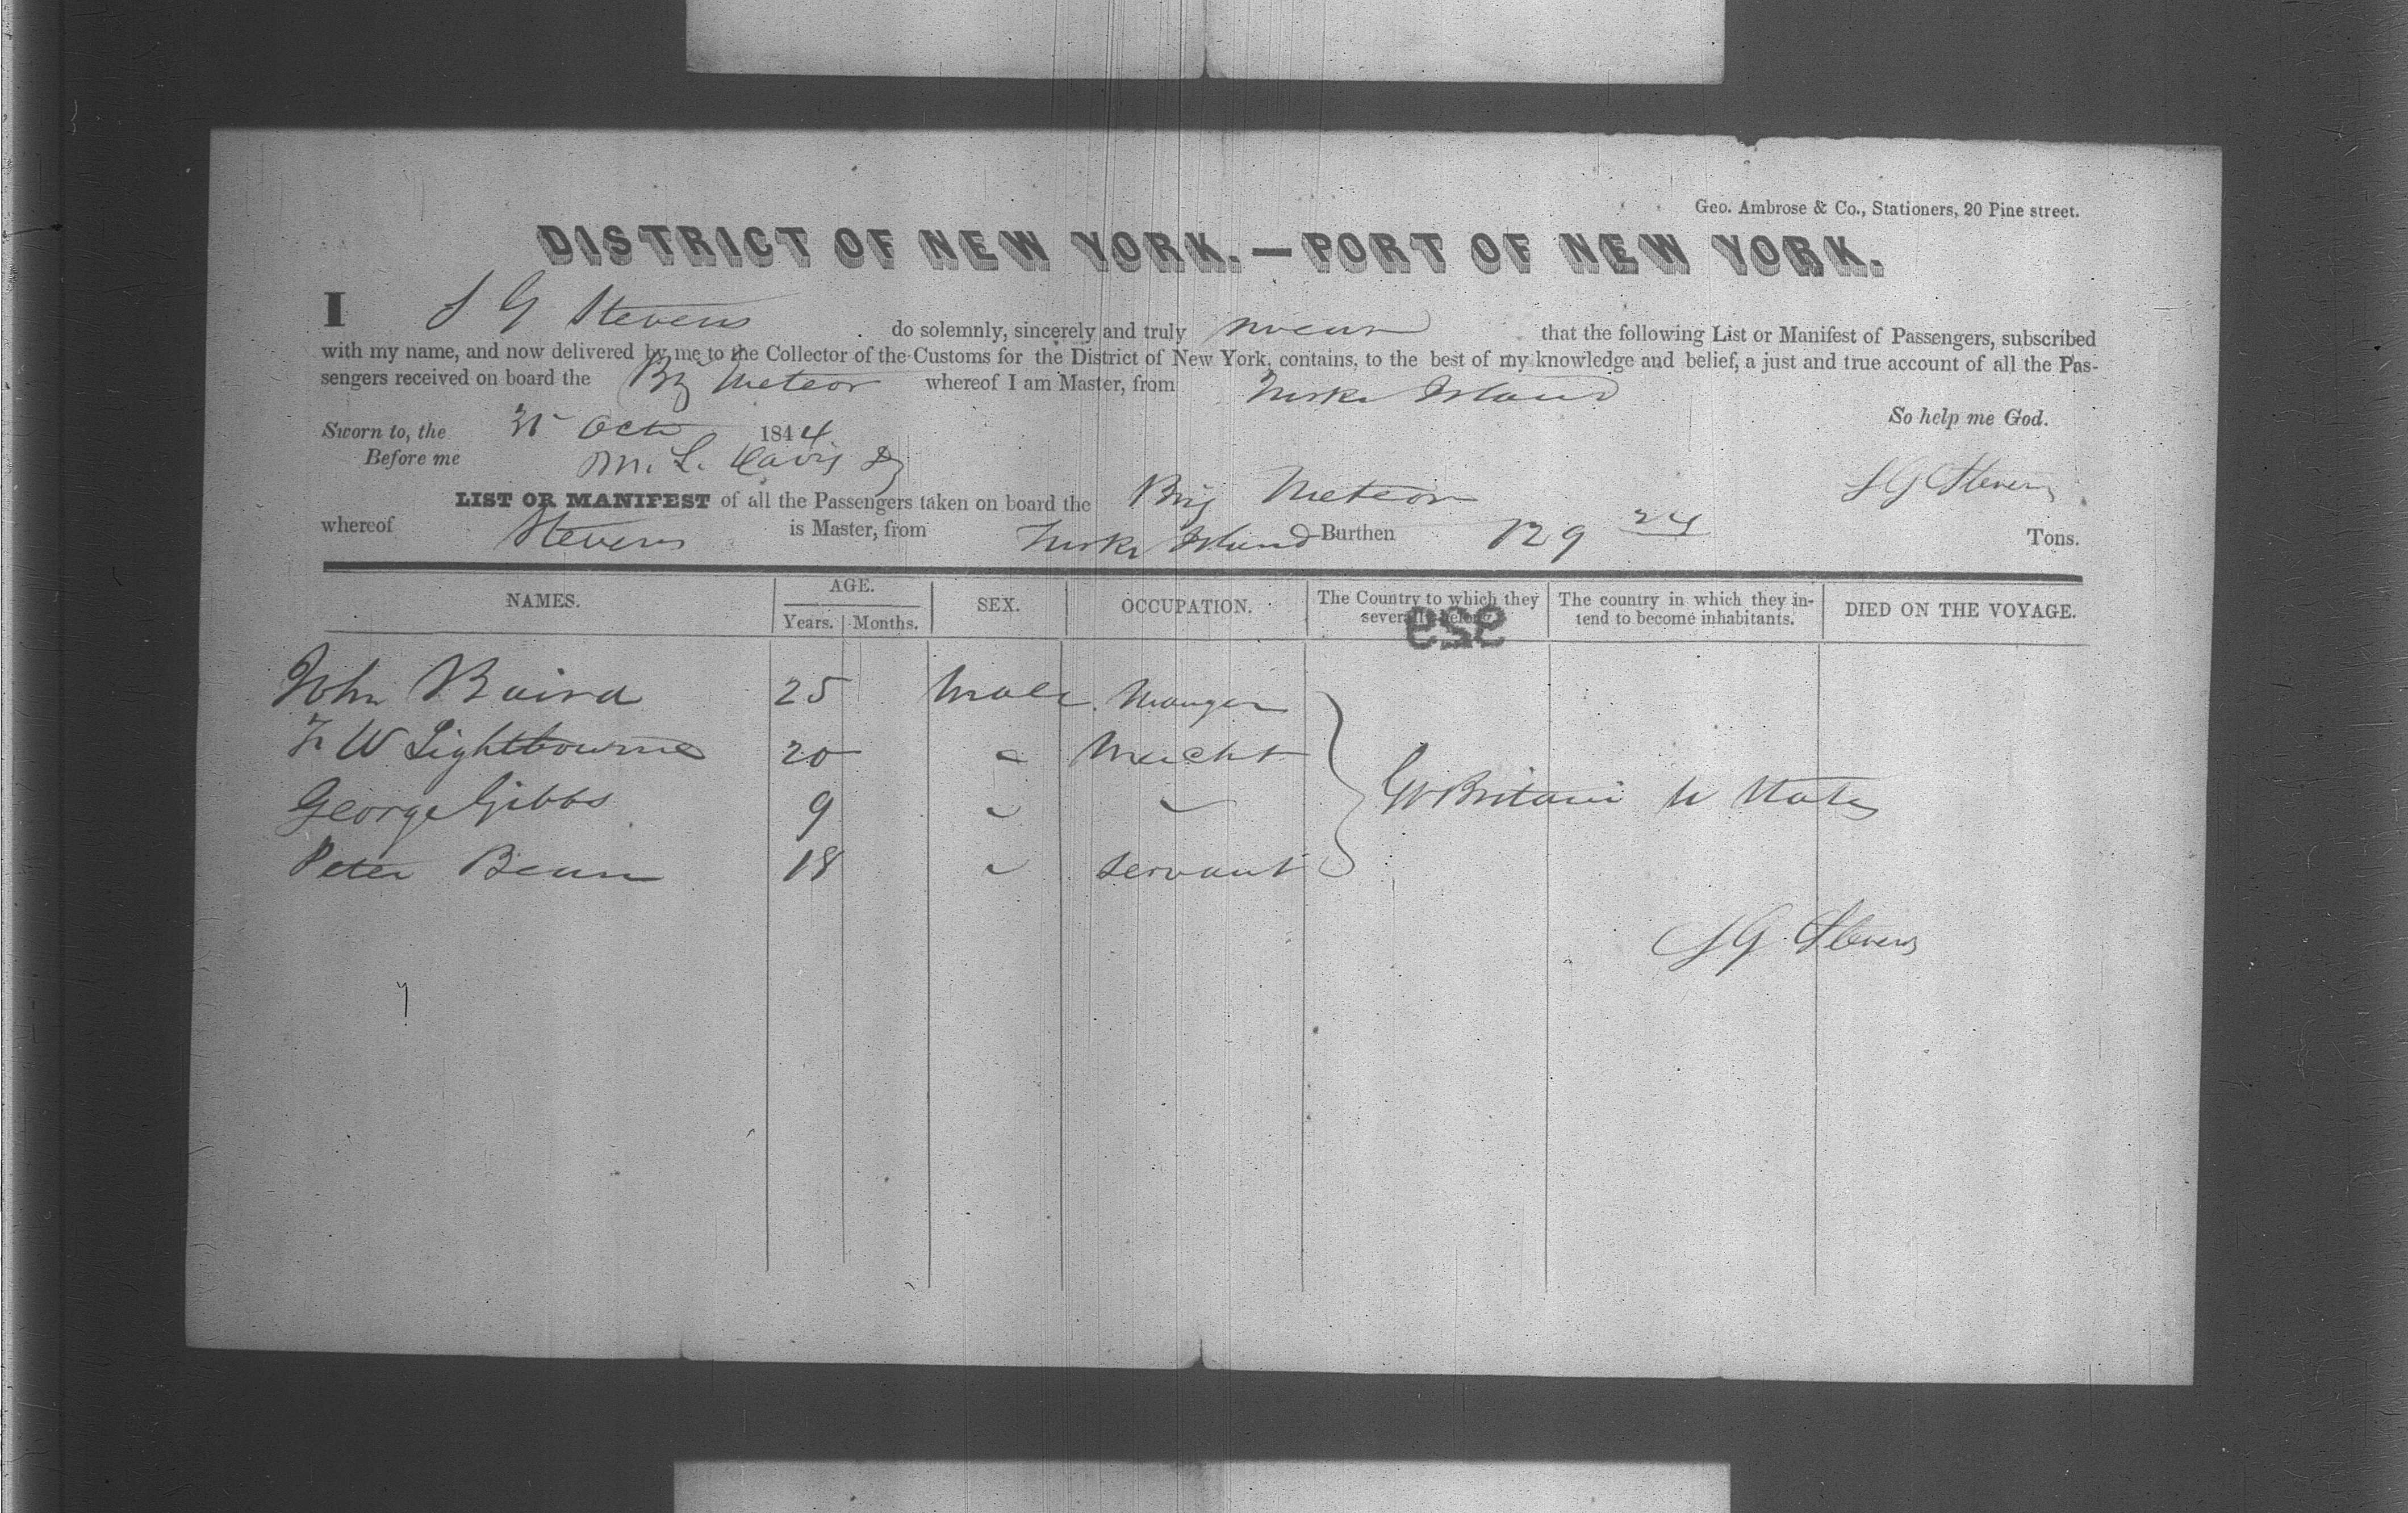 Geo. Ambrose & Co., Stationers, 20 Pine street.
DISTRICT OF NEW YORK.—PORT OF NEW YORK.
I S G Stevens do solemnly, sincerely and truly swear that the following List or Manifest of Passengers, subscribed
with my name, and now delivered by me to the Collector of the Customs for the District of New York, contains, to the best of my knowledge and belief, a just and true account of all the Pas-
sengers received on board the Brig Meteor whereof I am Master, from Turks Island
So help me God.
Sworn to, the 31 Octr 1844
Before me M. L. Davis
S G Stevens
LIST OR MANIFEST of all the Passengers taken on board the Brig Meteor
whereof Stevens is Master, from Turks Island Burthen 129 24 Tons.
NAMES. AGE. Years. Months. SEX. OCCUPATION. The Country to which they severally belong. The country in which they in- tend to become inhabitants. DIED ON THE VOYAGE.
929
John Baird 25 Male
W Lightbourne 20 " Mercht
George Gibbs 9 " "
Gt Britain U States
Peter Bean 18 " Servant
S G Stevens